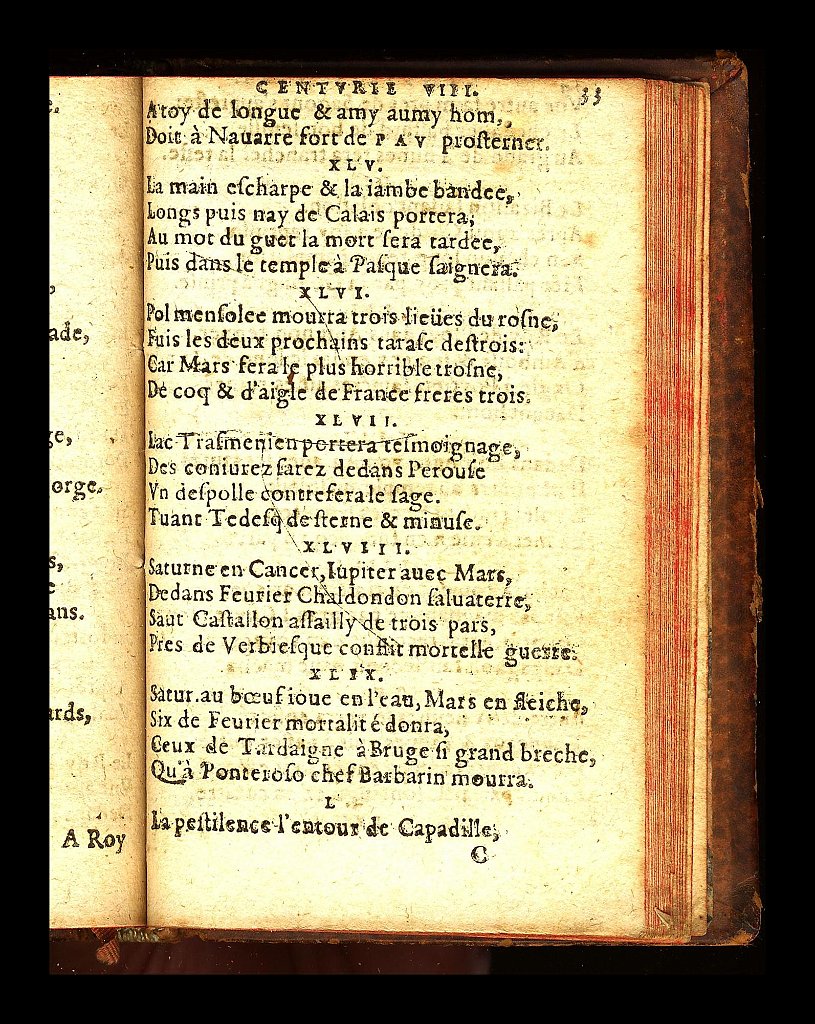 ade,
ge,
orge.
s,
e
ans.
ards,
A Roy
CENTVRIE VIII.
33
A roy de longue & amy aumy hom,
Doit à Nauarre fort de PAV prosterner.
XLV.
La main escharpe & la iambe bandee,
Longs puis nay de Calais portera,
Au mot du guet la mort sera tardee,
Puis dans le temple à Pasque saignera.
XLVI.
Pol mensolee mourra trois lieües du rosne,
Fuis les deux prochains tarasc destrois:
Car Mars fera le plus horrible trosne,
De coq & d'aigle de France freres trois.
XLVII.
Lac Trasmenien portera tesmoignage,
Des coniurez sarez dedans Perouse
Vn despolle contrefera le sage.
Tuant Tedesq de sterne & minuse.
XLVIII.
Saturne en Cancer, Iupiter auec Mars,
Dedans Feurier Chaldondon saluaterre,
Saut Castallon assailly de trois pars,
Pres de Verbiesque conflit mortelle guerre.
XLIX.
Satur. au bœuf ioue en l'eau, Mars en fleiche,
Six de Feurier mortalité donra,
Ceux de Tardaigne à Bruge si grand breche,
Qu'à Ponteroso chef Barbarin mourra.
L
La pestilence l'entour de Capadille,
C